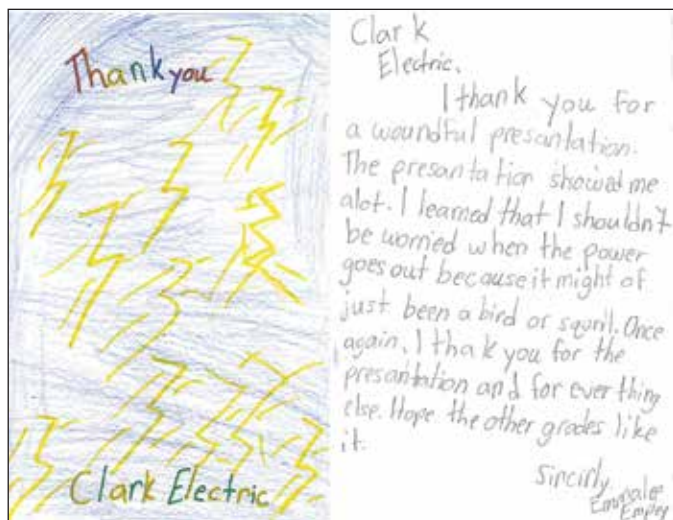 Thank you
Clark Electric
Clark
Electric.
I thank you for
a woundful presantation.
The presantation showed me
alot. I learned that I shouldn't
be worried when the power
goes out because it might of
just been a bird or squril. Once
again, I thak you for the
presantation and for ever thing
else. Hope the other grades like
it.
Sincirly,
Empey